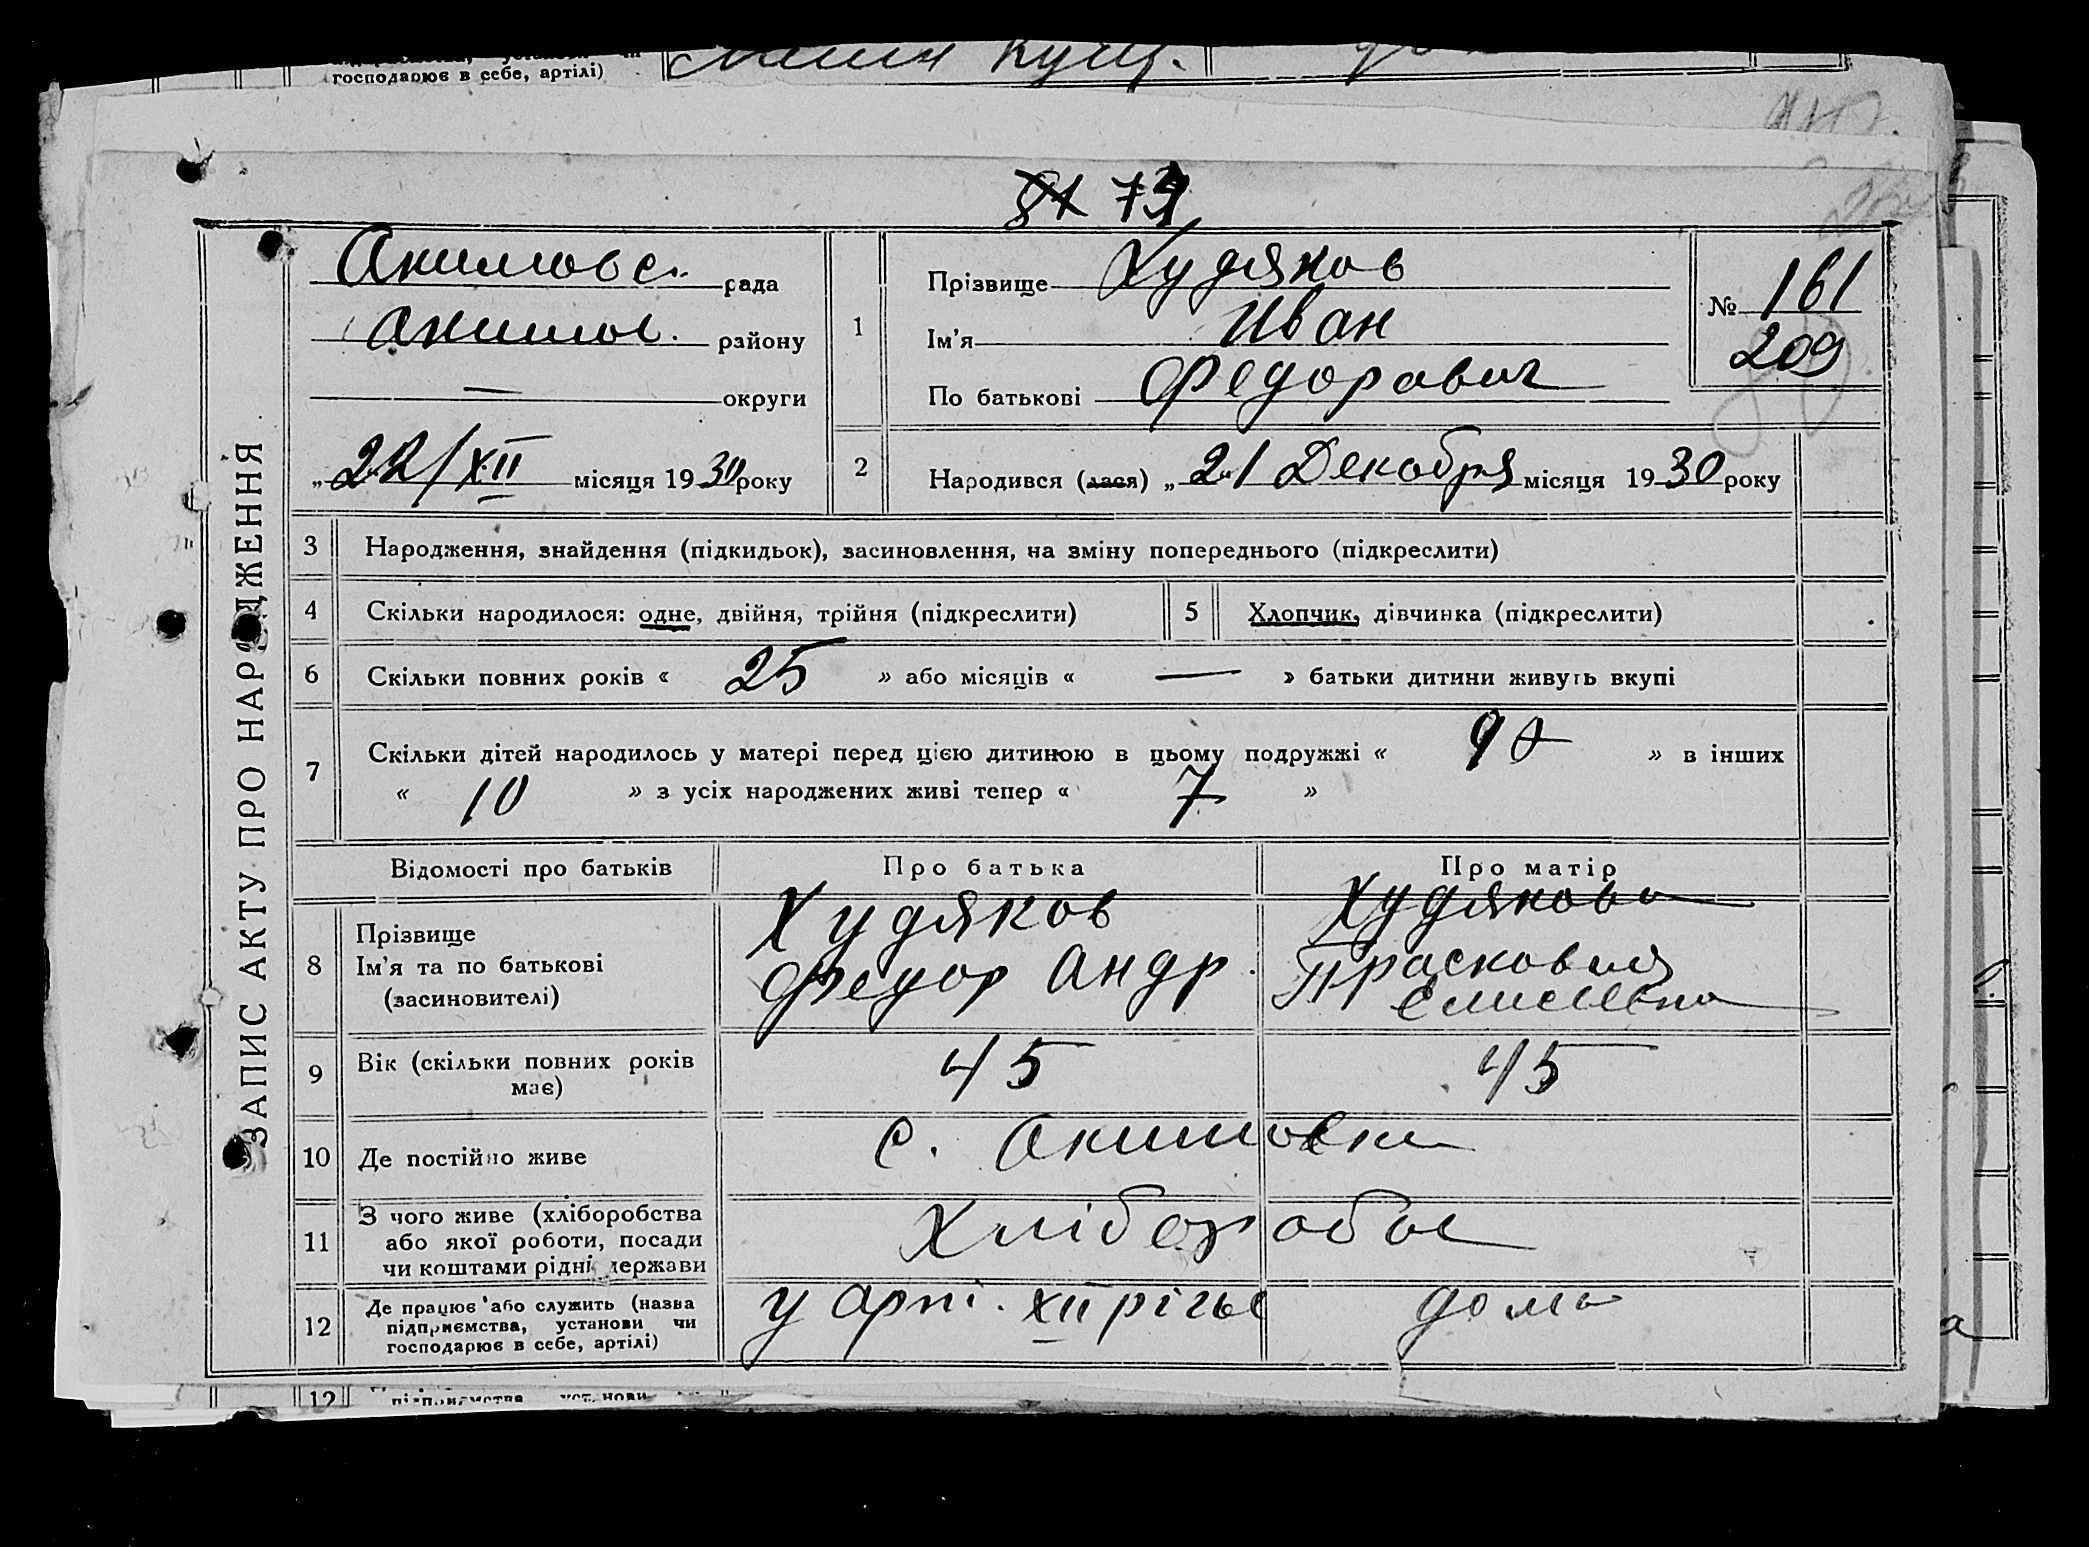 господарює в себе, артілі)
73
Акимовс. рада
Акимов. району
— округи
„22/XII місяця 1930 року
1
Прізвище Худяков
Ім'я Иван
По батькові Федорович
№ 161
209
2
Народився (лася) „21 Декабря місяця 1930 року
ЗАПИС АКТУ ПРО НАРОДЖЕННЯ
3 Народження, знайдення (підкидьок), засиновлення, на зміну попереднього (підкреслити)
4 Скільки народилося: одне, двійня, трійня (підкреслити) 5 Хлопчик, дівчинка (підкреслити)
6 Скільки повних років « 25 » або місяців « — » батьки дитини живуть вкупі
7 Скільки дітей народилось у матері перед цією дитиною в цьому подружжі « 9 » в інших
« 10 » з усіх народжених живі тепер « 7 »
Відомості про батьків Про батька Про матір
8 Прізвище
Ім'я та по батькові
(засиновителі)
Худяков
Федор Андр.
Худякова
Прасковия
Елисеевна
9 Вік (скільки повних років
має)
45 45
10 Де постійно живе с. Акимовки
11 З чого живе (хліборобства
або якої роботи, посади
чи коштами рідні держави
Хлібороб
12 Де працює або служить (назва
підприємства, установи чи
господарює в себе, артілі)
у арті. XII річчя дома
12 підприємства установи